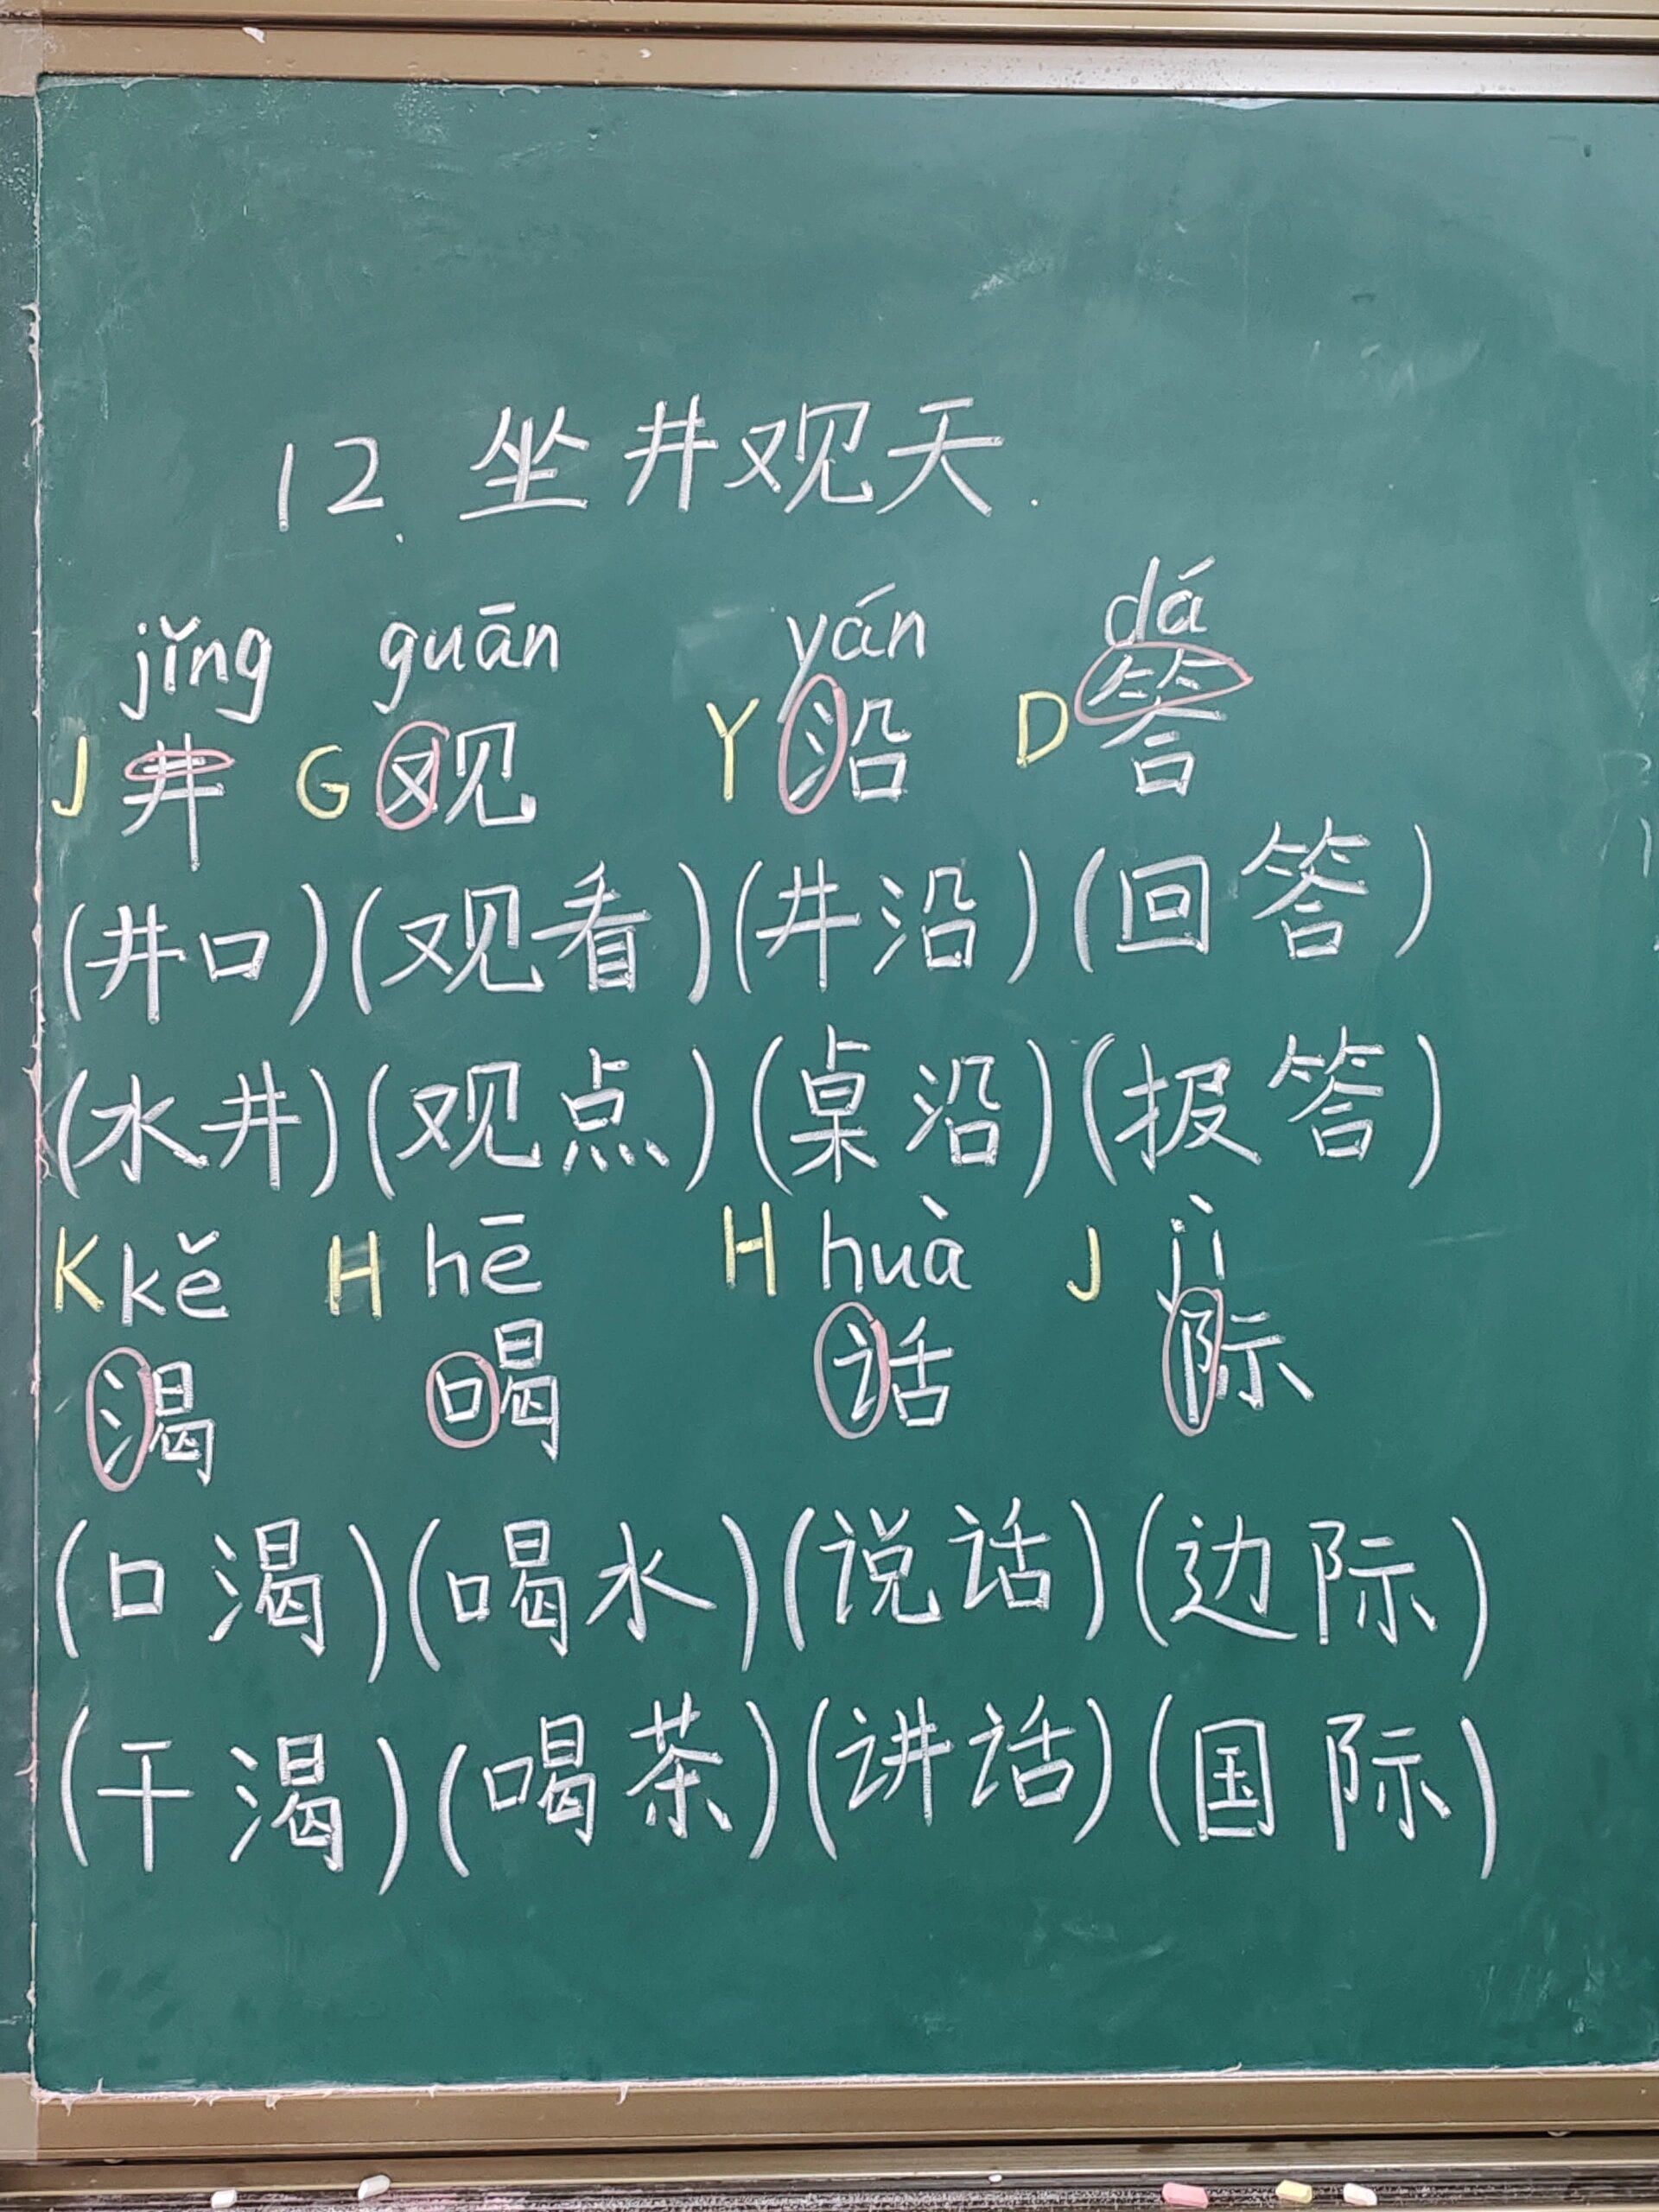 12、坐井观天.
jǐng guān yán dá
J 井 G 观 Y 沿 D 答
(井口)(观看)(井沿)(回答)
(水井)(观点)(桌沿)(报答)
K kě H hē H huà J jì
渴 喝 话 际
(口渴)(喝水)(说话)(边际)
(干渴)(喝茶)(讲话)(国际)